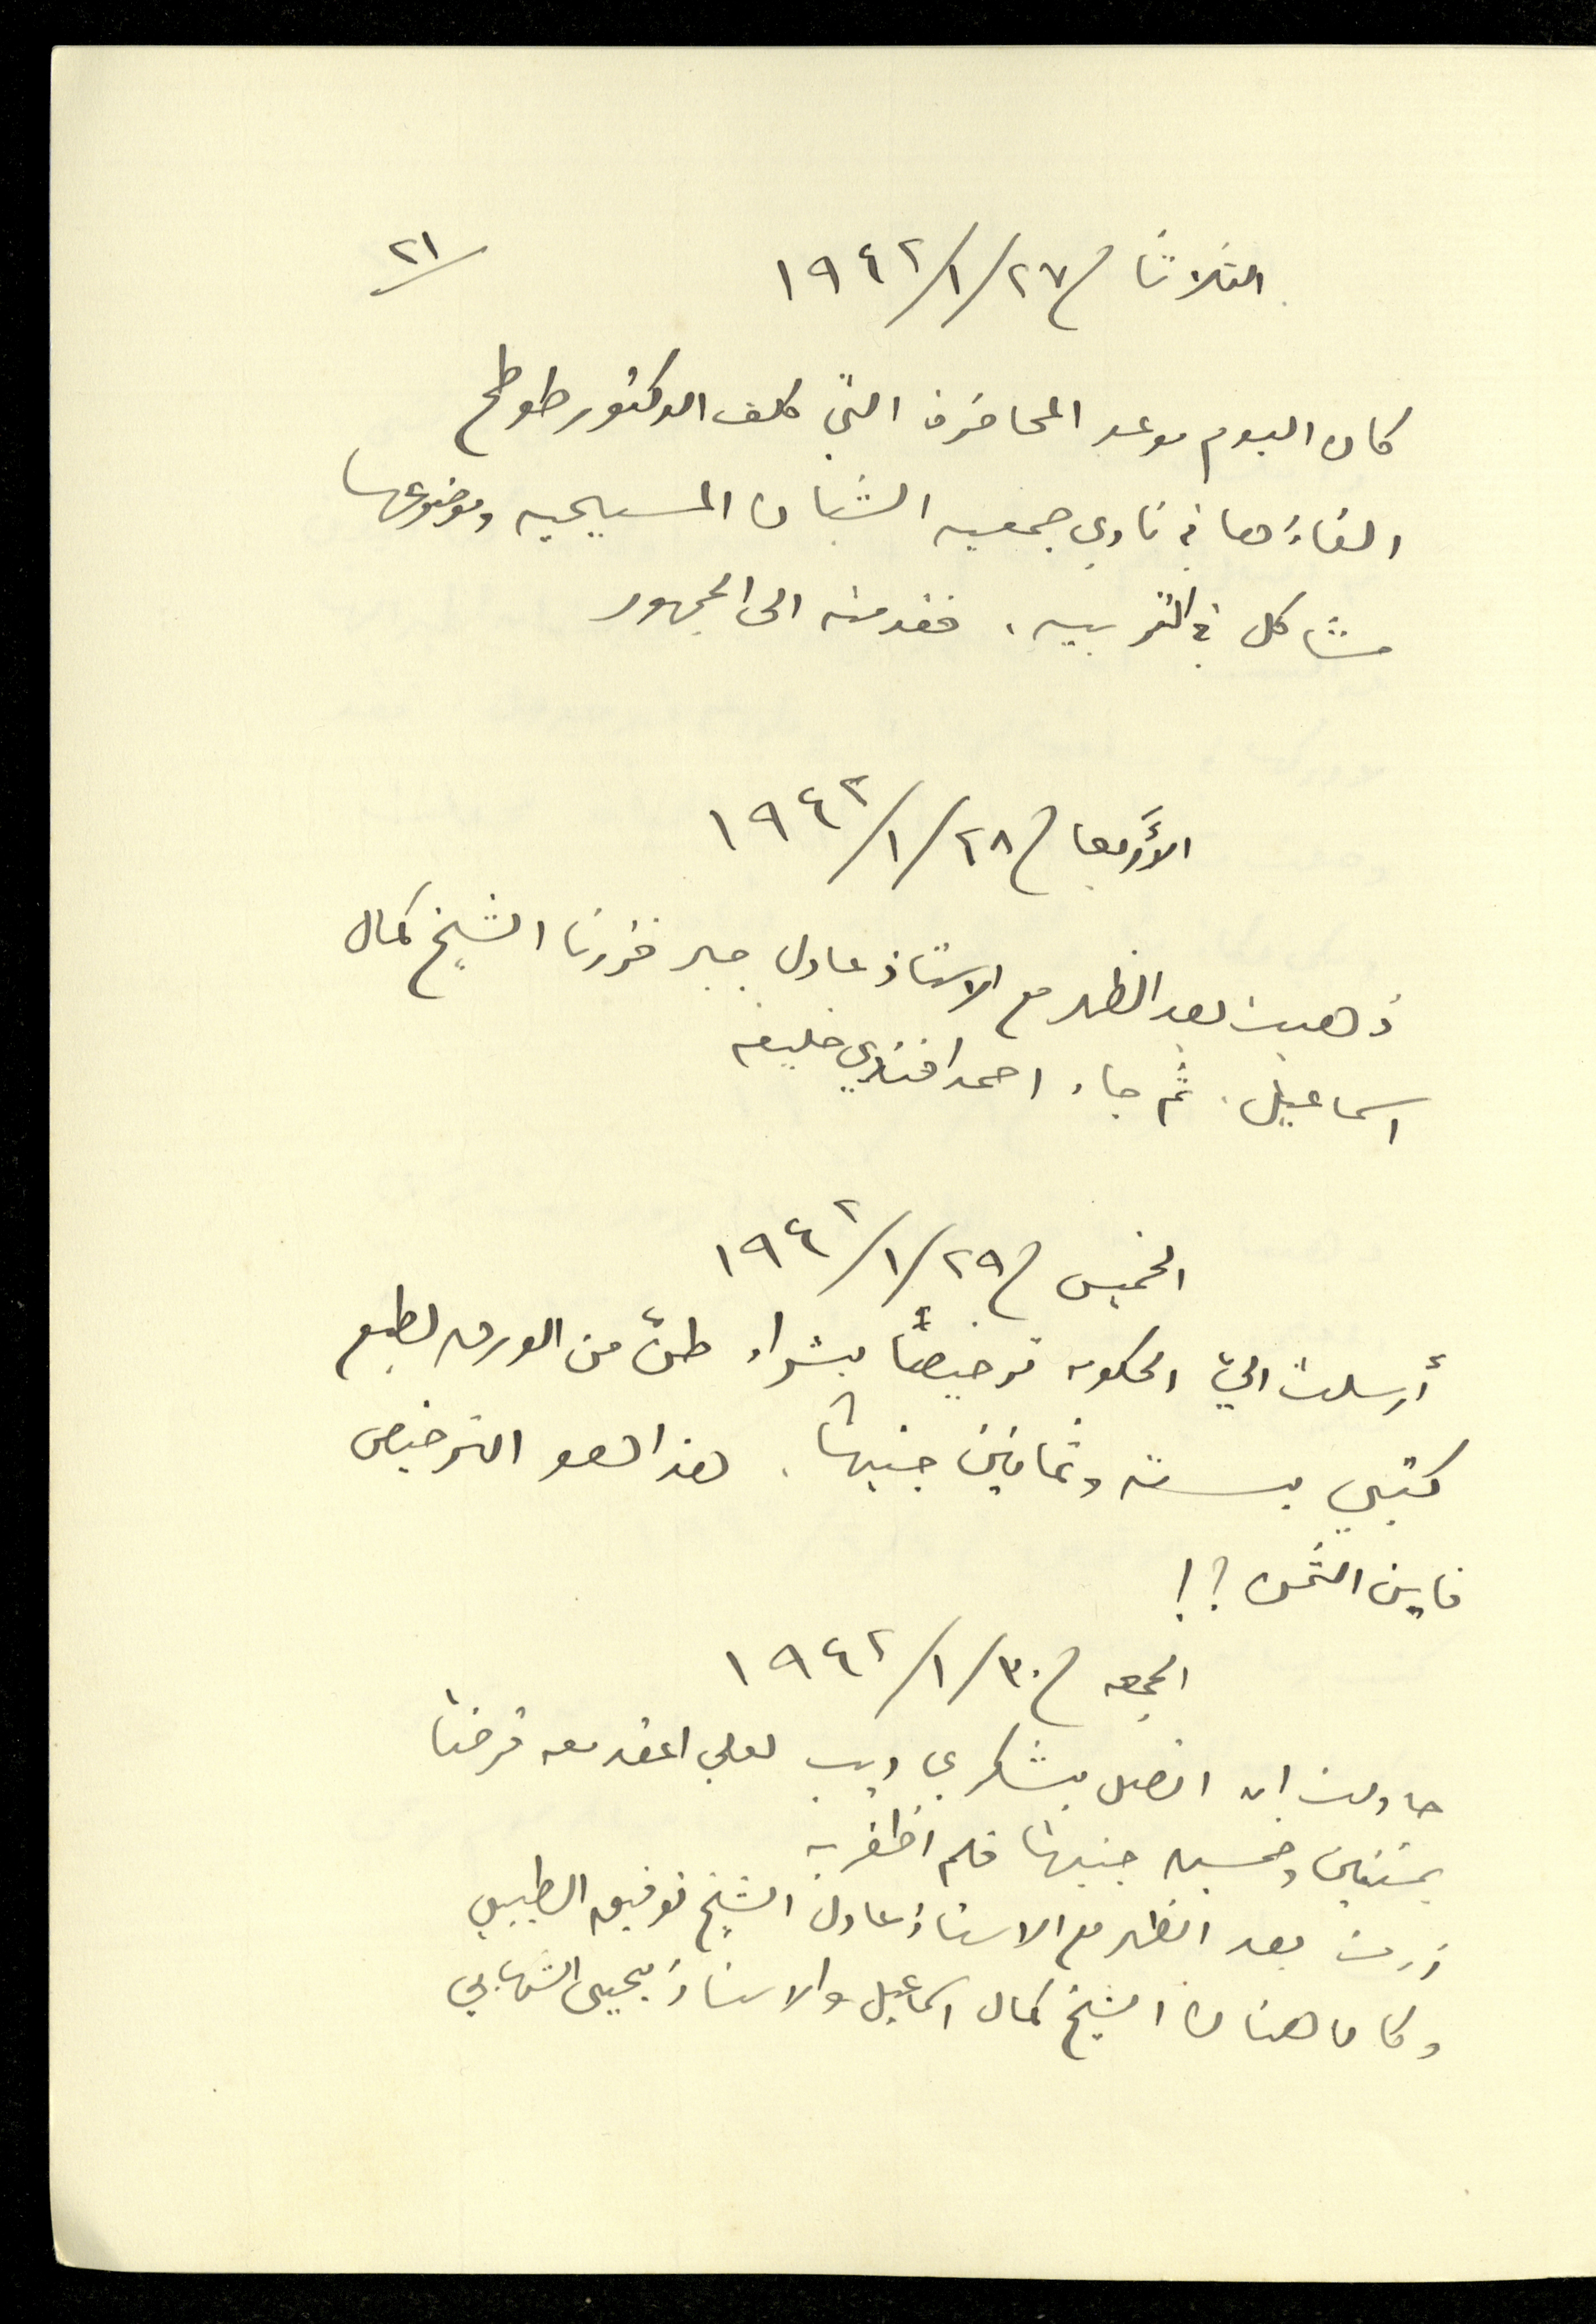 ٢١/
الثلاثا ٢٧/١/١٩٤٢
كان اليوم موعد المحاضرة التي كلف الدكتور طوطح
القاؤها في نادي جمعيه الشبان المسيحيه وموضوعها
مشاكل في التربيه. فقدمته الى الجمهور
الأَربعا ٢٨/١/١٩٤٢
ذهبت بعد الظهر مع الاستاذ عادل جبر فزرنا الشيخ كمال
اسماعيل. ثم جاء احمد افندي خليفه
الخميس ٢٩/١/١٩٤٢
أرسلت اليّ الحكومه ترخيصاً بشراء طنّ من الورق لطبع
كتبي بسته وثمانين جنيهاً. هذا هو الترخيص
فاين الثمن ؟!
الجمعه ٣٠/١/١٩٤٢
حاولت ان اتصل بشكري ديب لعلي اعقد معه قرضا
بمئتين وخمسين جنيها فلم اظفر به
زرت بعد الظهر مع الاستاذ عادل الشيخ توفيق الطيبي
وكان هناك الشيخ كمال اسماعيل والاستاذ يحيى الشهابي